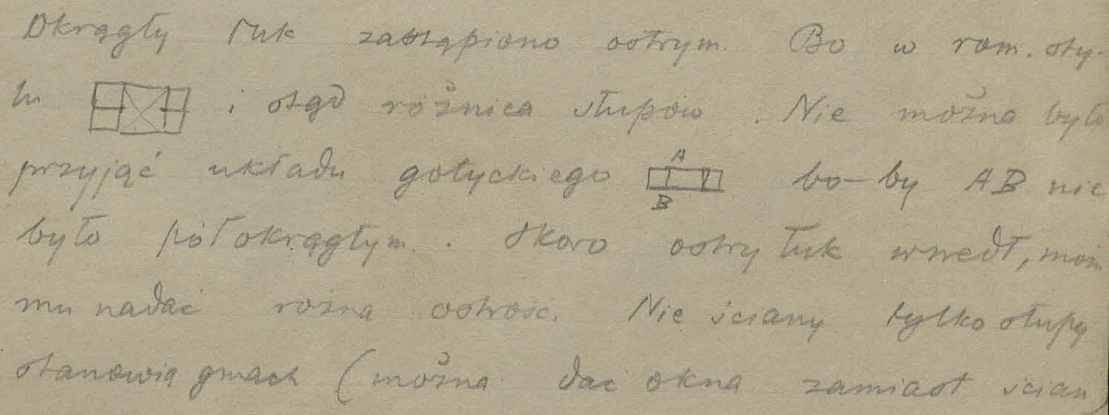 Okrągły łuk zastąpiono ostrym. Bo w rom. sty-
lu i stąd różnica słupów. Nie można było
przyjąć układu gotyckiego A B bo-by AB nie
było półokrągłym. Skoro ostry łuk wszedł, moż
mu nadać różna ostrość. Nie ściany tylko słupy
stanowią gmach (można dać okna zamiast ścian